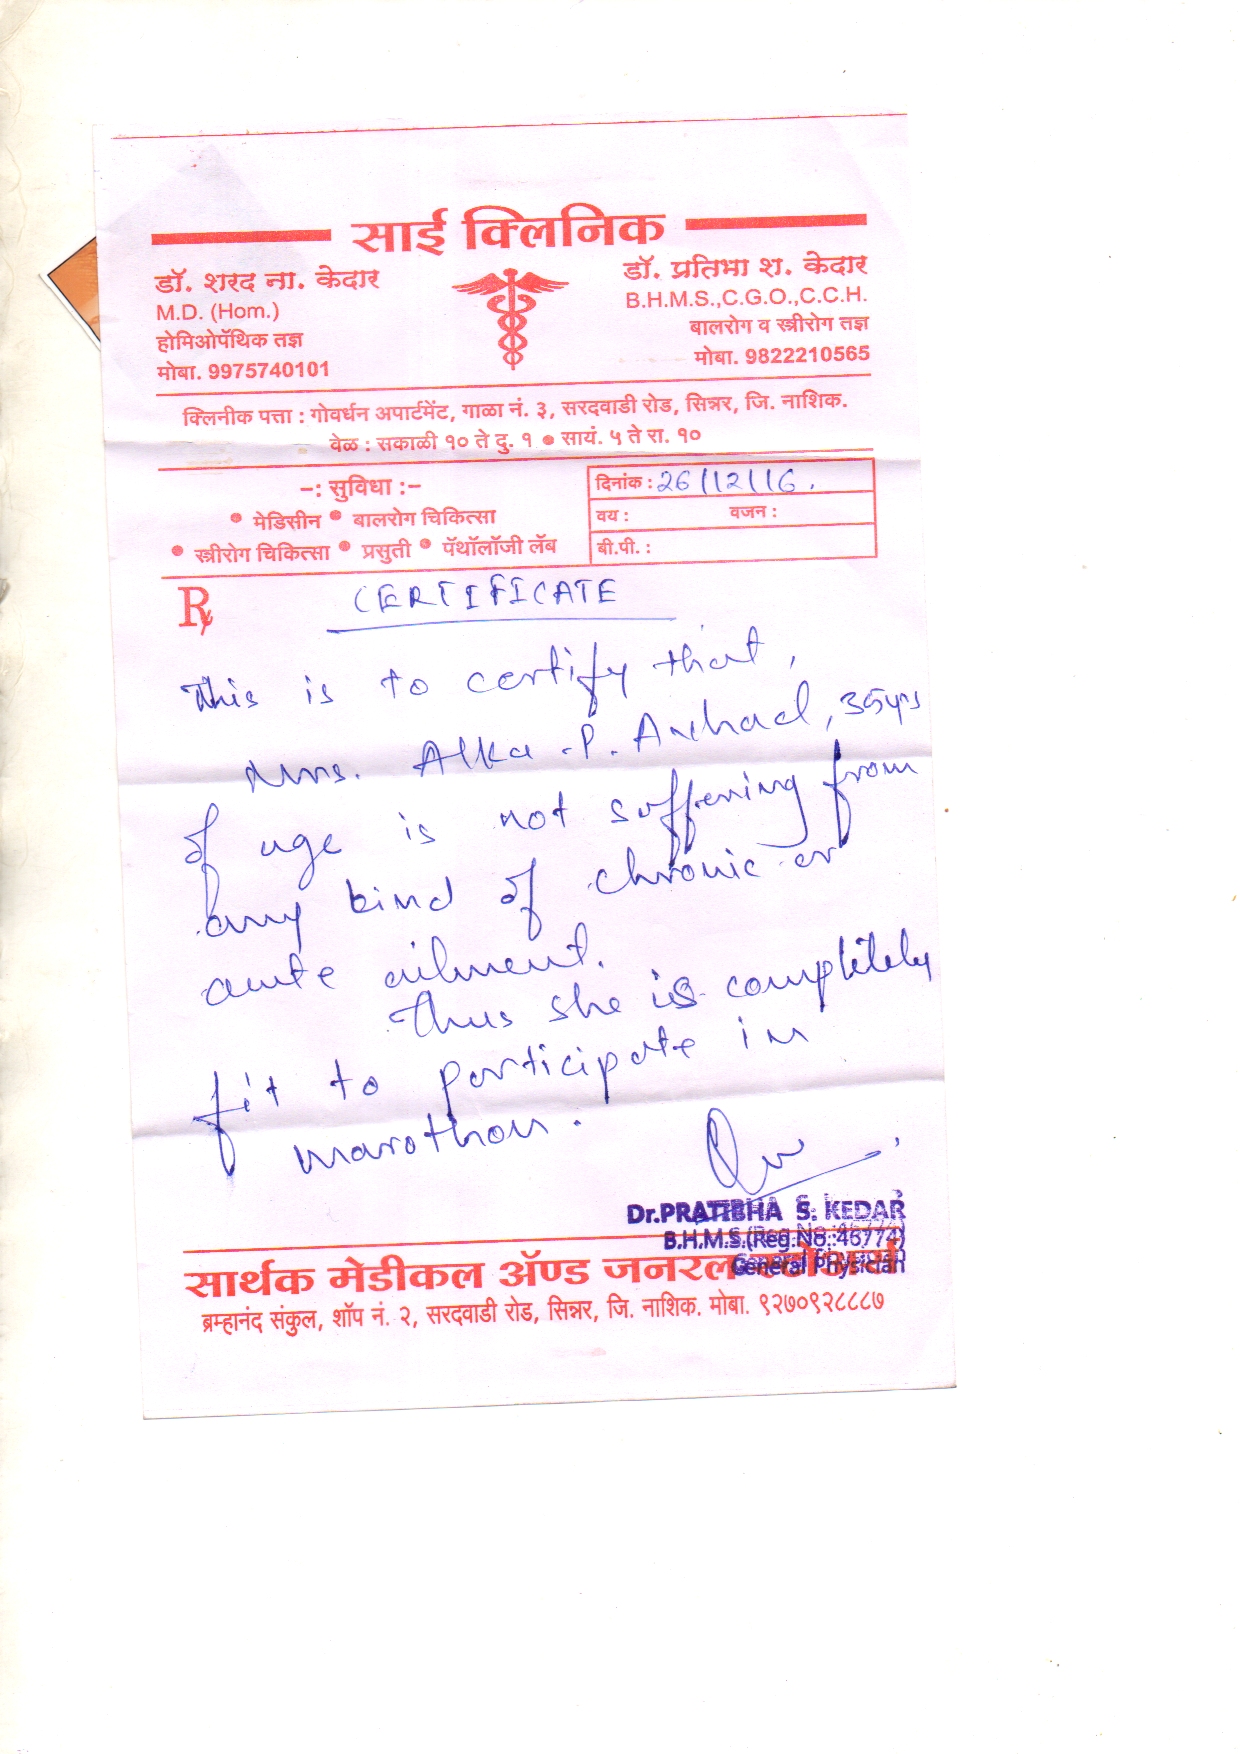 साई क्लिनिक
डॉ. शरद ना. केदार
M.D. (Hom.)
होमिओपॅथिक तज्ञ
मोबा. 9975740101
डॉ. प्रतिभा श. केदार
B.H.M.S.,C.G.O.,C.C.H.
बालरोग व स्त्रीरोग तज्ञ
मोबा. 9822210565
क्लिनीक पत्ता : गोवर्धन अपार्टमेंट, गाळा नं. ३, सरदवाडी रोड, सिन्नर, जि. नाशिक.
वेळ : सकाळी १० ते दु. १ ● सायं. ५ ते रा. १०
–: सुविधा :–
● मेडिसीन ● बालरोग चिकित्सा
● स्त्रीरोग चिकित्सा ● प्रसुती ● पॅथॉलॉजी लॅब
दिनांक : 26/12/16.
वय : वजन :
बी.पी. :
CERTIFICATE
This is to certify that,
Mrs. Alka .P. Avhad, 35yrs
of age is not suffering from
any kind of chronic or
acute ailment.
Thus she is completely
fit to participate in
marathon.
Dr.PRATIBHA S. KEDAR
B.H.M.S.(Reg.No.:46774)
General Physician
सार्थक मेडीकल ॲण्ड जनरल स्टोअर्स
ब्रम्हानंद संकुल, शॉप नं. २, सरदवाडी रोड, सिन्नर, जि. नाशिक. मोबा. ९२७०९२८८८७